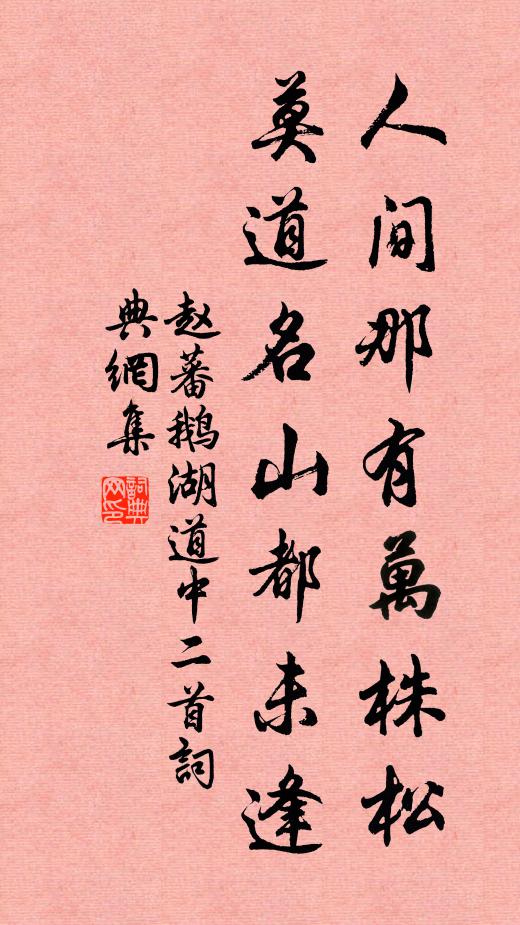 人间那有萬株松
莫道名山都未逢
赵蕃鹅湖道中二首詞
典網集
詞典网印